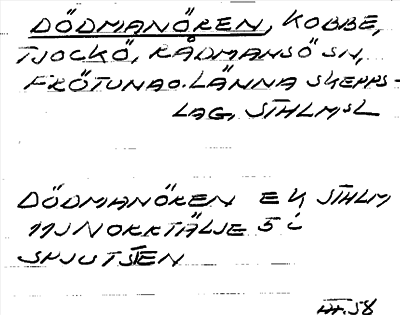 DÖDMANÖREN, KOBBE,
TJOCKÖ, RÅDMANSÖ SN,
FRÖTUNA O. LÄNNA SKEPPS-
LAG, STHLMSL
DÖDMANÖREN EK STHLM
11J NORRTÄLJE 5 i
SKJUTSTEN
III.58